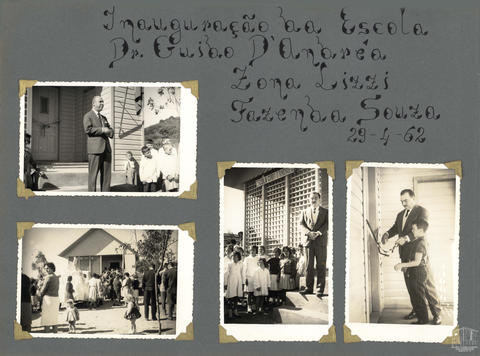 Inauguração da Escola
Dr. Guido D'Andréa
Zona Lizzi
Fazenda Souza
29-4-62